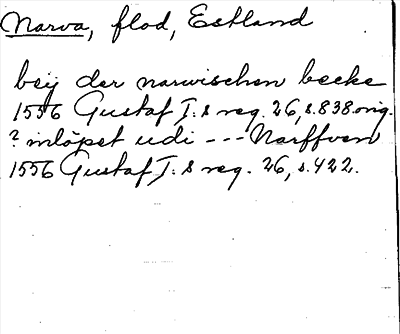 Narva, flod, Estland
beij der narwischen becke
1556 Gustaf I:s reg. 26, s.838.orig.
? inlöpet udi --- Narffven
1556 Gustaf I:s reg. 26, s.422.